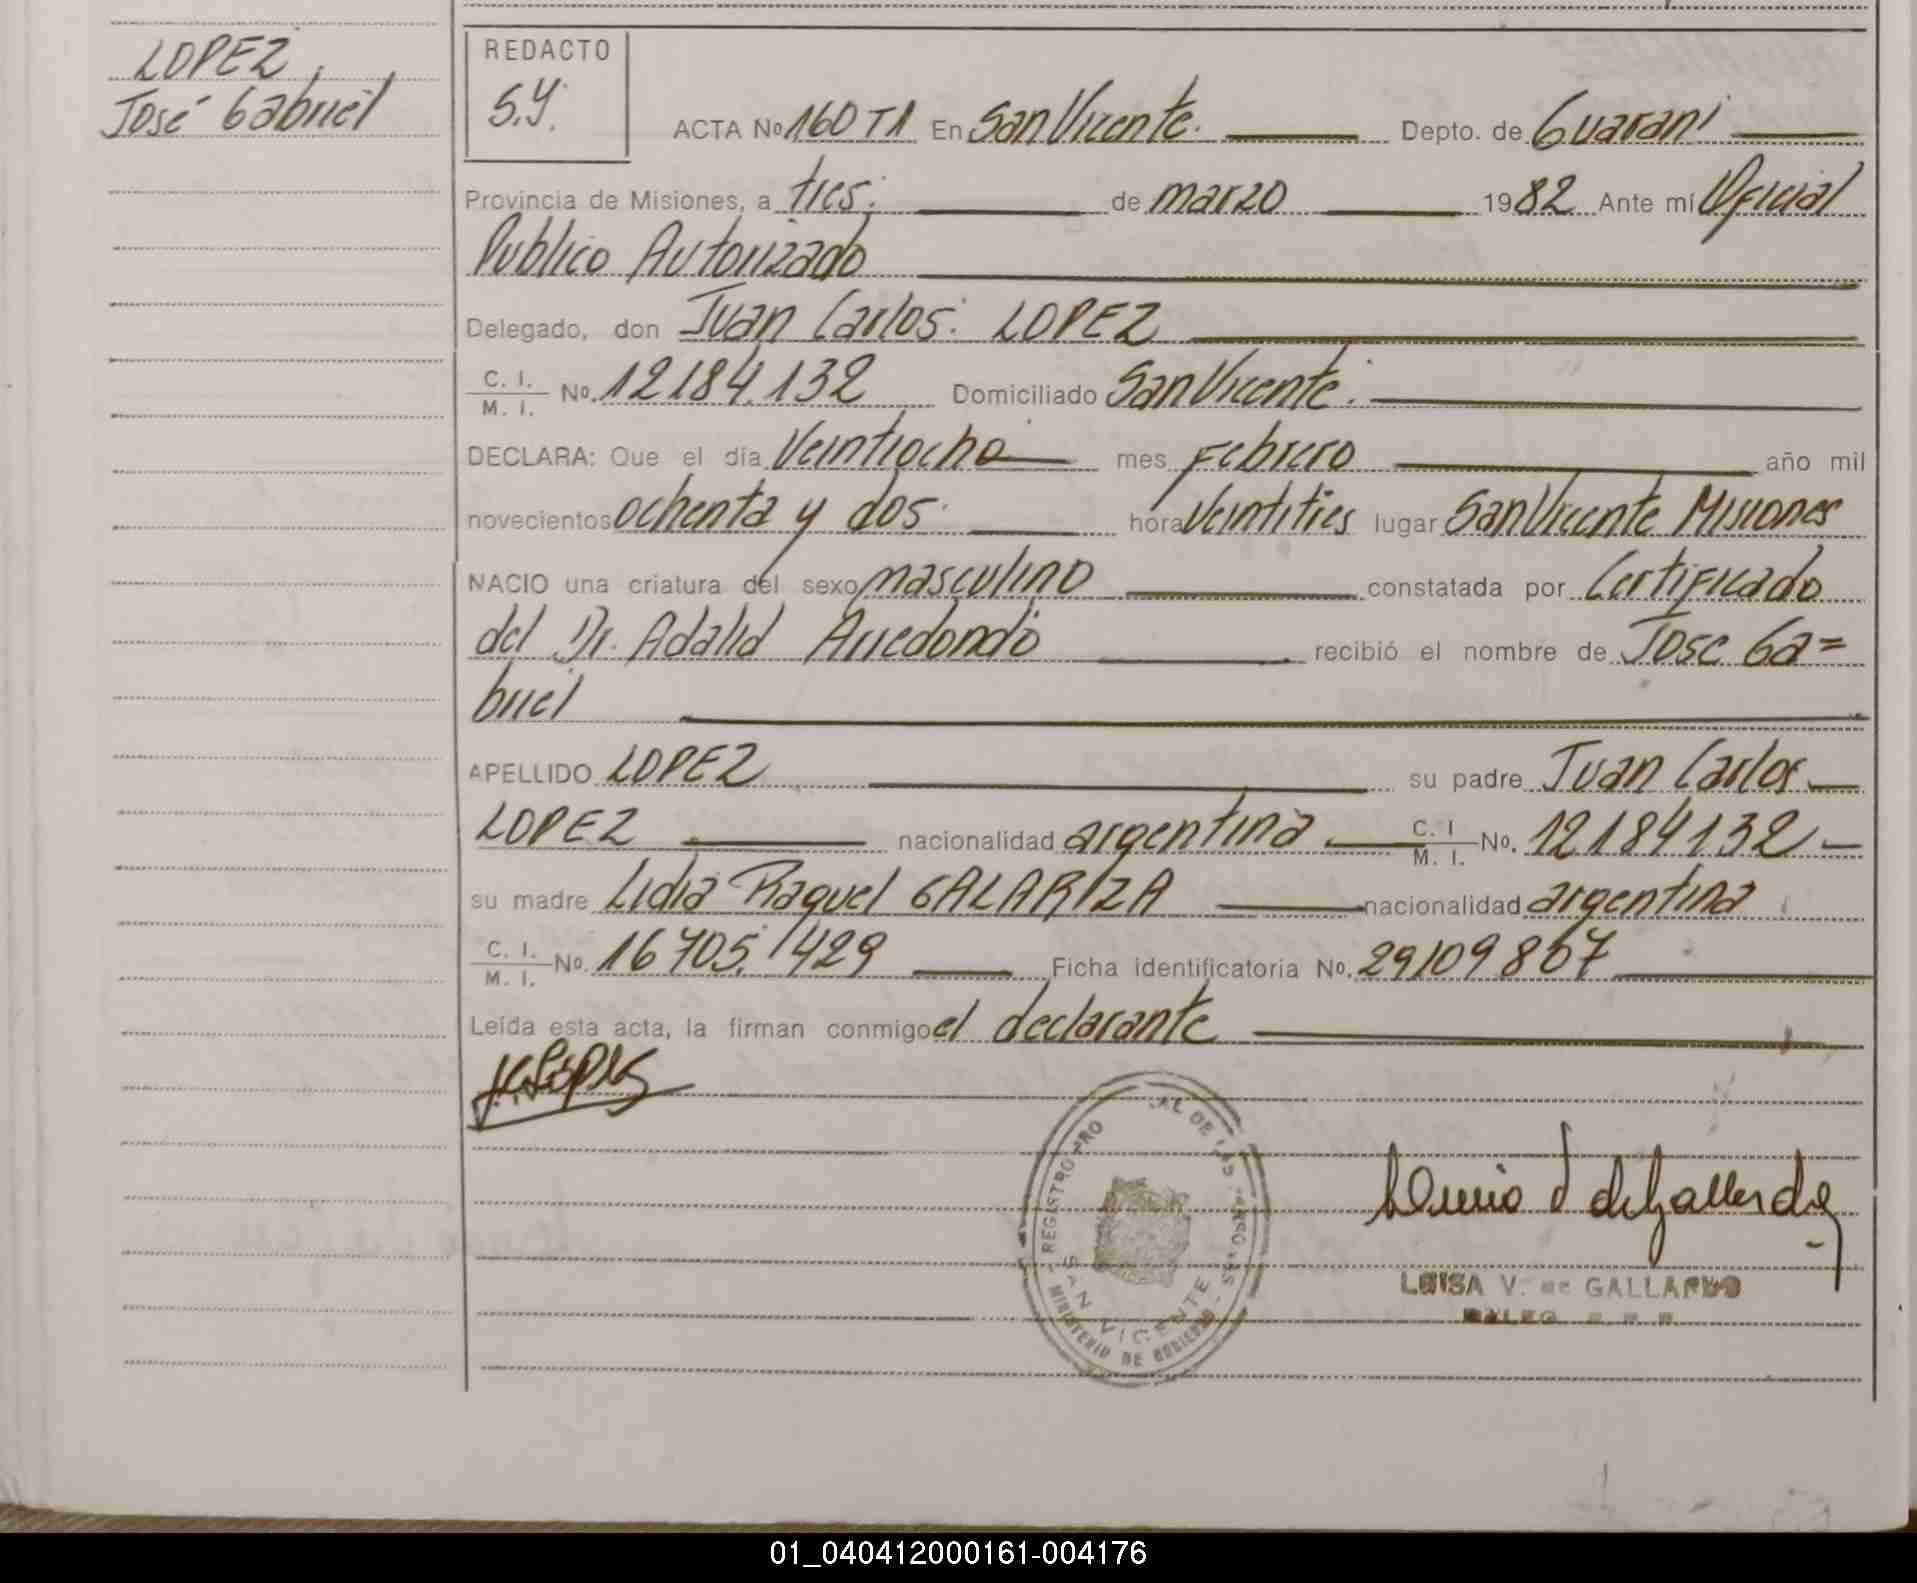 LOPEZ,
José Gabriel
REDACTO
S.Y.
ACTA No 160 T1 En San Vicente. Depto. de Guarani
Provincia de Misiones, a tres. de marzo 1982 Ante mí Oficial
Publico Autorizado
Delegado, don Juan Carlos. LOPEZ
C. I. M. I. No. 12184.132 Domiciliado San Vicente.
DECLARA: Que el día Veintiocho mes Febrero año mil
novecientos ochenta y dos. hora Veintitres lugar San Vicente Misiones
NACIO una criatura del sexo masculino constatada por Certificado
del Dr. Adalid Arredondo recibió el nombre de Jose Ga=
briel
APELLIDO LOPEZ su padre Juan Carlos
LOPEZ nacionalidad argentina C. I M. I. No. 12184132
su madre Lidia Raquel GALARIZA nacionalidad argentina
C. I. M. I. No. 16705.429 Ficha identificatoria No. 29109867
Leída esta acta, la firman conmigo el declarante
J.C. López
REGISTRO PRO AL DE LAS PERSONAS
SAN VICENTE
MINISTERIO DE GOBIERNO
de Gallardo
LUISA V. de GALLARDO
01_040412000161-004176